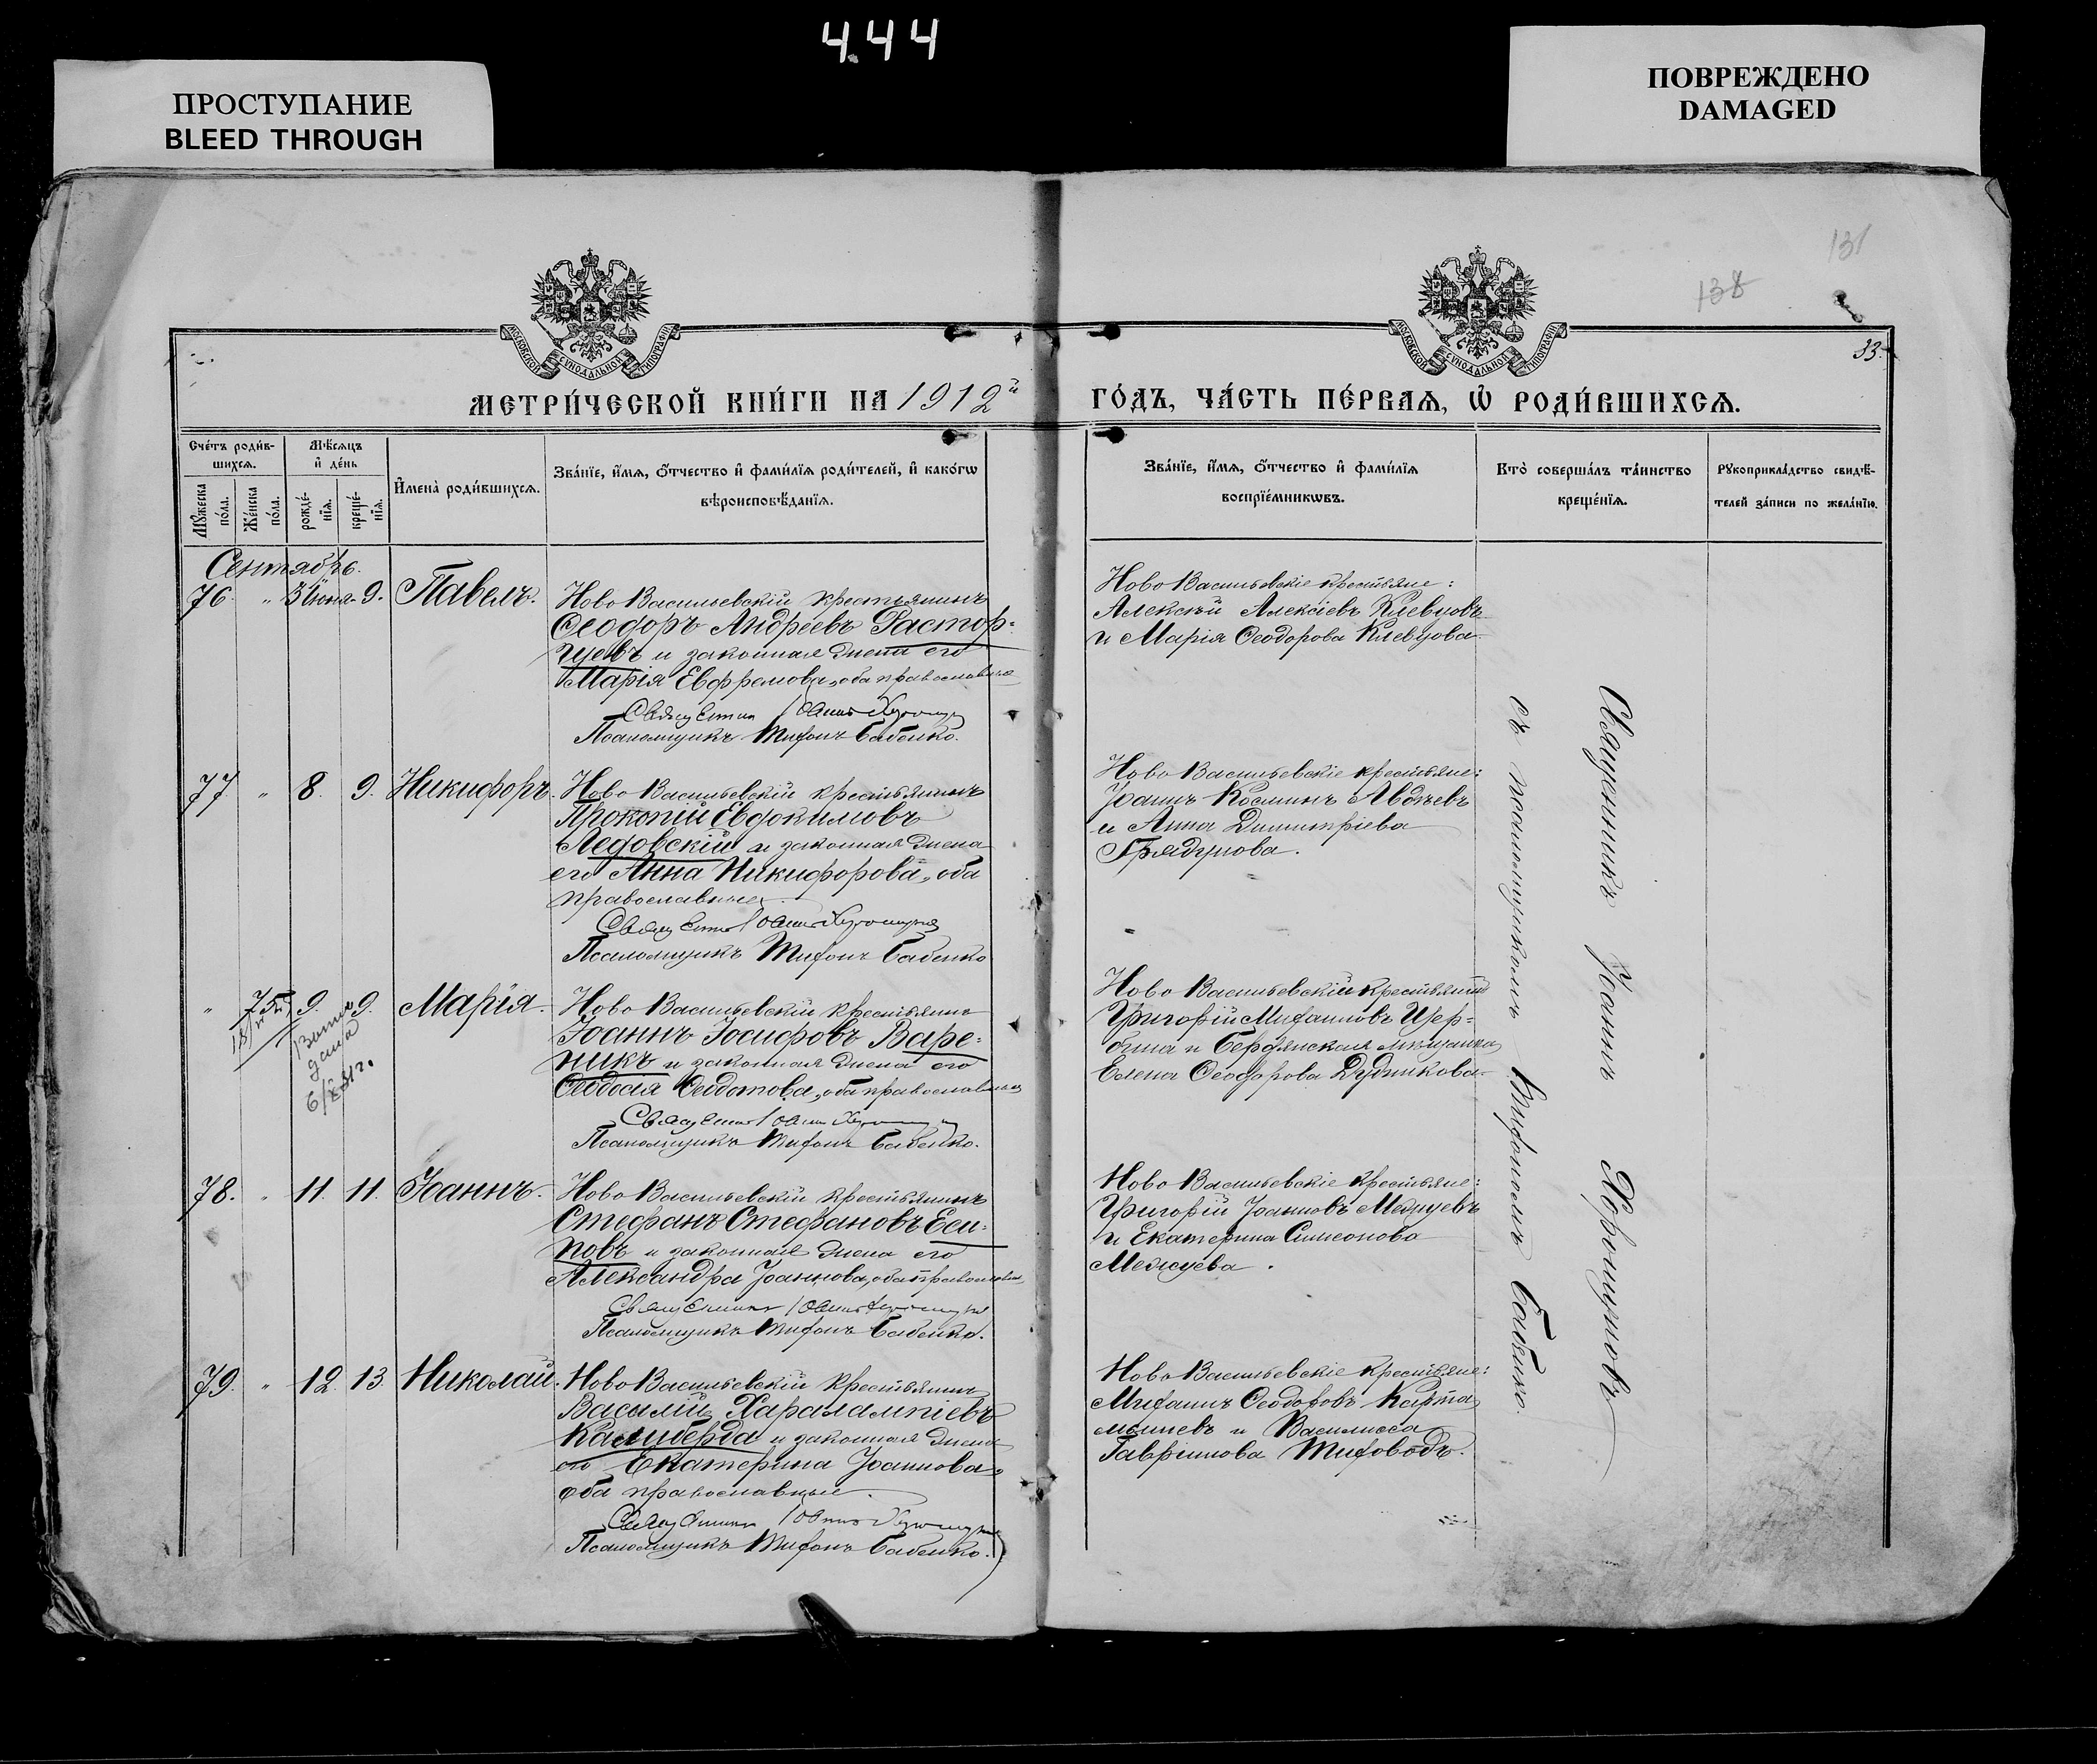 444
ПРОСТУПАНИЕ
BLEED THROUGH
ПОВРЕЖДЕНО
DAMAGED
131
138
33.
МОСКОВСКОЙ СУНОДАЛЬНОЙ ТИПОГРАФІИ
МОСКОВСКОЙ СУНОДАЛЬНОЙ ТИПОГРАФІИ
МЕТРИ́ЧЕСКОЙ КНИ́ГИ НА 1912й
ГО́ДЪ, ЧА́СТЬ ПЕ́РВАЯ, Ѡ҆ РОДИ́ВШИХСЯ.
Сче́тъ роди́в-
шихся.
Мѣ́сяцъ
и҆ де́нь
Мꙋ́жеска
по́ла.
Же́нска
по́ла.
рожде́-
нїя.
креще́-
нїя.
И҆мена̀ роди́вшихся.
Зва́нїе, и҆́мя, ѻ҆́тчество и҆ фами́лїя роди́телей, и҆ како́гѡ
вѣроисповѣ́данїя.
Зва́нїе, и҆́мя, ѻ҆́тчество и҆ фами́лїя
воспрїе́мникѡвъ.
Кто̀ соверша́лъ та́инство
креще́нїя.
Рꙋкоприкла́дство свидѣ́-
телей за́писи по жела́нїю.
Сентябрь.
76. " 3 Іюня. 9. Павелъ.
Ново Васильевскій крестьянинъ
Ѳеодоръ Андреевъ Растор-
гуевъ и законная жена его
Марія Евфремова, оба православные
Священникъ Іоаннъ
Псаломщикъ Тифонъ Бабенко.
Ново Васильевскіе крестьяне:
Алексѣй Алексѣевъ Клевцовъ
и Марія Ѳеодорова Клевцова
77 " 8. 9. Никифоръ.
Ново Васильевскій крестьянинъ
Прокопій Евдокимовъ
Ледовскій и законная жена
его Анна Никифорова, оба
православные.
Священникъ Іоаннъ
Псаломщикъ Тифонъ Бабенко
Ново Васильевскіе крестьяне:
Іоаннъ Косминъ Авдѣевъ
и Анна Димитріева
Грядунова.
" 75. 9. 9. Марія.
Ново Васильевскій крестьянинъ
Іоаннъ Іосифовъ Варе-
никъ и законная жена его
Ѳеодосія Ѳедотова, оба православные
Священникъ Іоаннъ
Псаломщикъ Тифонъ Бабенко.
Ново Васильевскій крестьянинъ
Григорій Митаиловъ Щер-
бина и Бердянская мѣщанка
Елена Ѳеодорова Дудникова
78. " 11. 11. Іоаннъ.
Ново Васильевскій крестьянинъ
Стефанъ Стефановъ Еси-
повъ и законная жена его
Александра Іоаннова, оба православн.
Священникъ Іоаннъ
Псаломщикъ Тифонъ Бабенко.
Ново Васильевскіе крестьяне:
Григорій Іоанновъ Межуевъ
и Екатерина Симеонова
Межуева.
79. " 12. 13. Николай.
Ново Васильевскій крестьянинъ
Василій Харалампіевъ
Калиберда и законная жена
его Екатерина Іоаннова,
оба православные.
Священникъ Іоаннъ
Псаломщикъ Тифонъ Бабенко.
Ново Васильевскіе крестьяне:
Ѳеодоровъ
и Василисса
Гавріилова
Священникъ Іоаннъ Хорошуновъ
съ псаломщикомъ Тифономъ Бабенко.